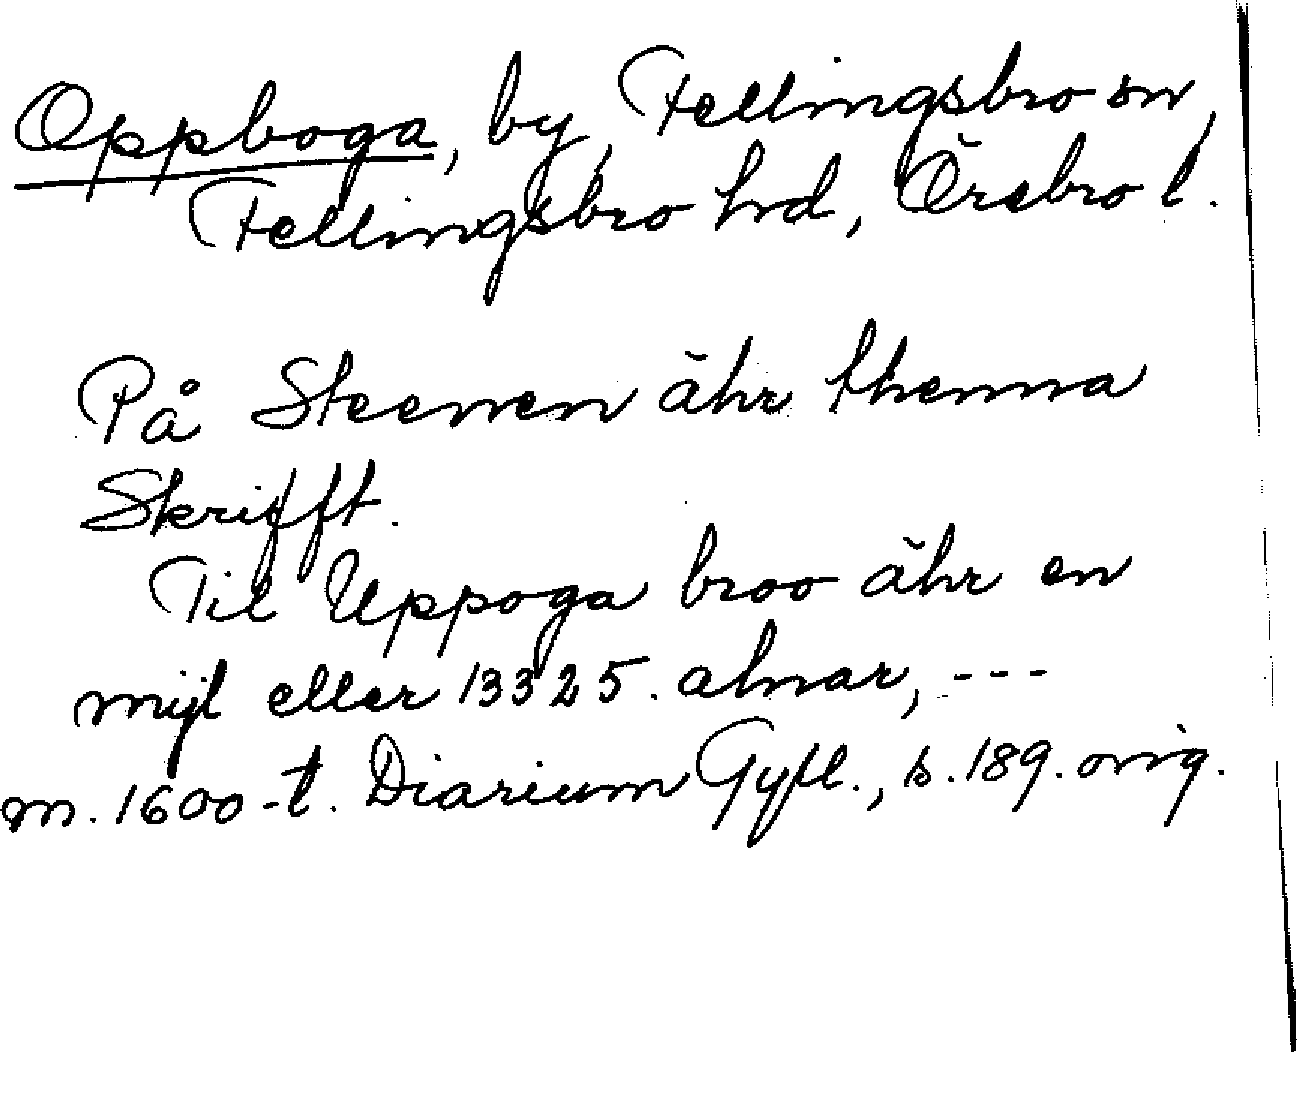 Oppboga, by, Fellingsbro sn,
Fellingsbro hrd, Örebro l.
På Steenen ähr thenna
Skrifft.
Til Uppoga broo ähr en
mijl eller 13325. alnar, ---
m. 1600-t. Diarium Gyll., s. 189. orig.